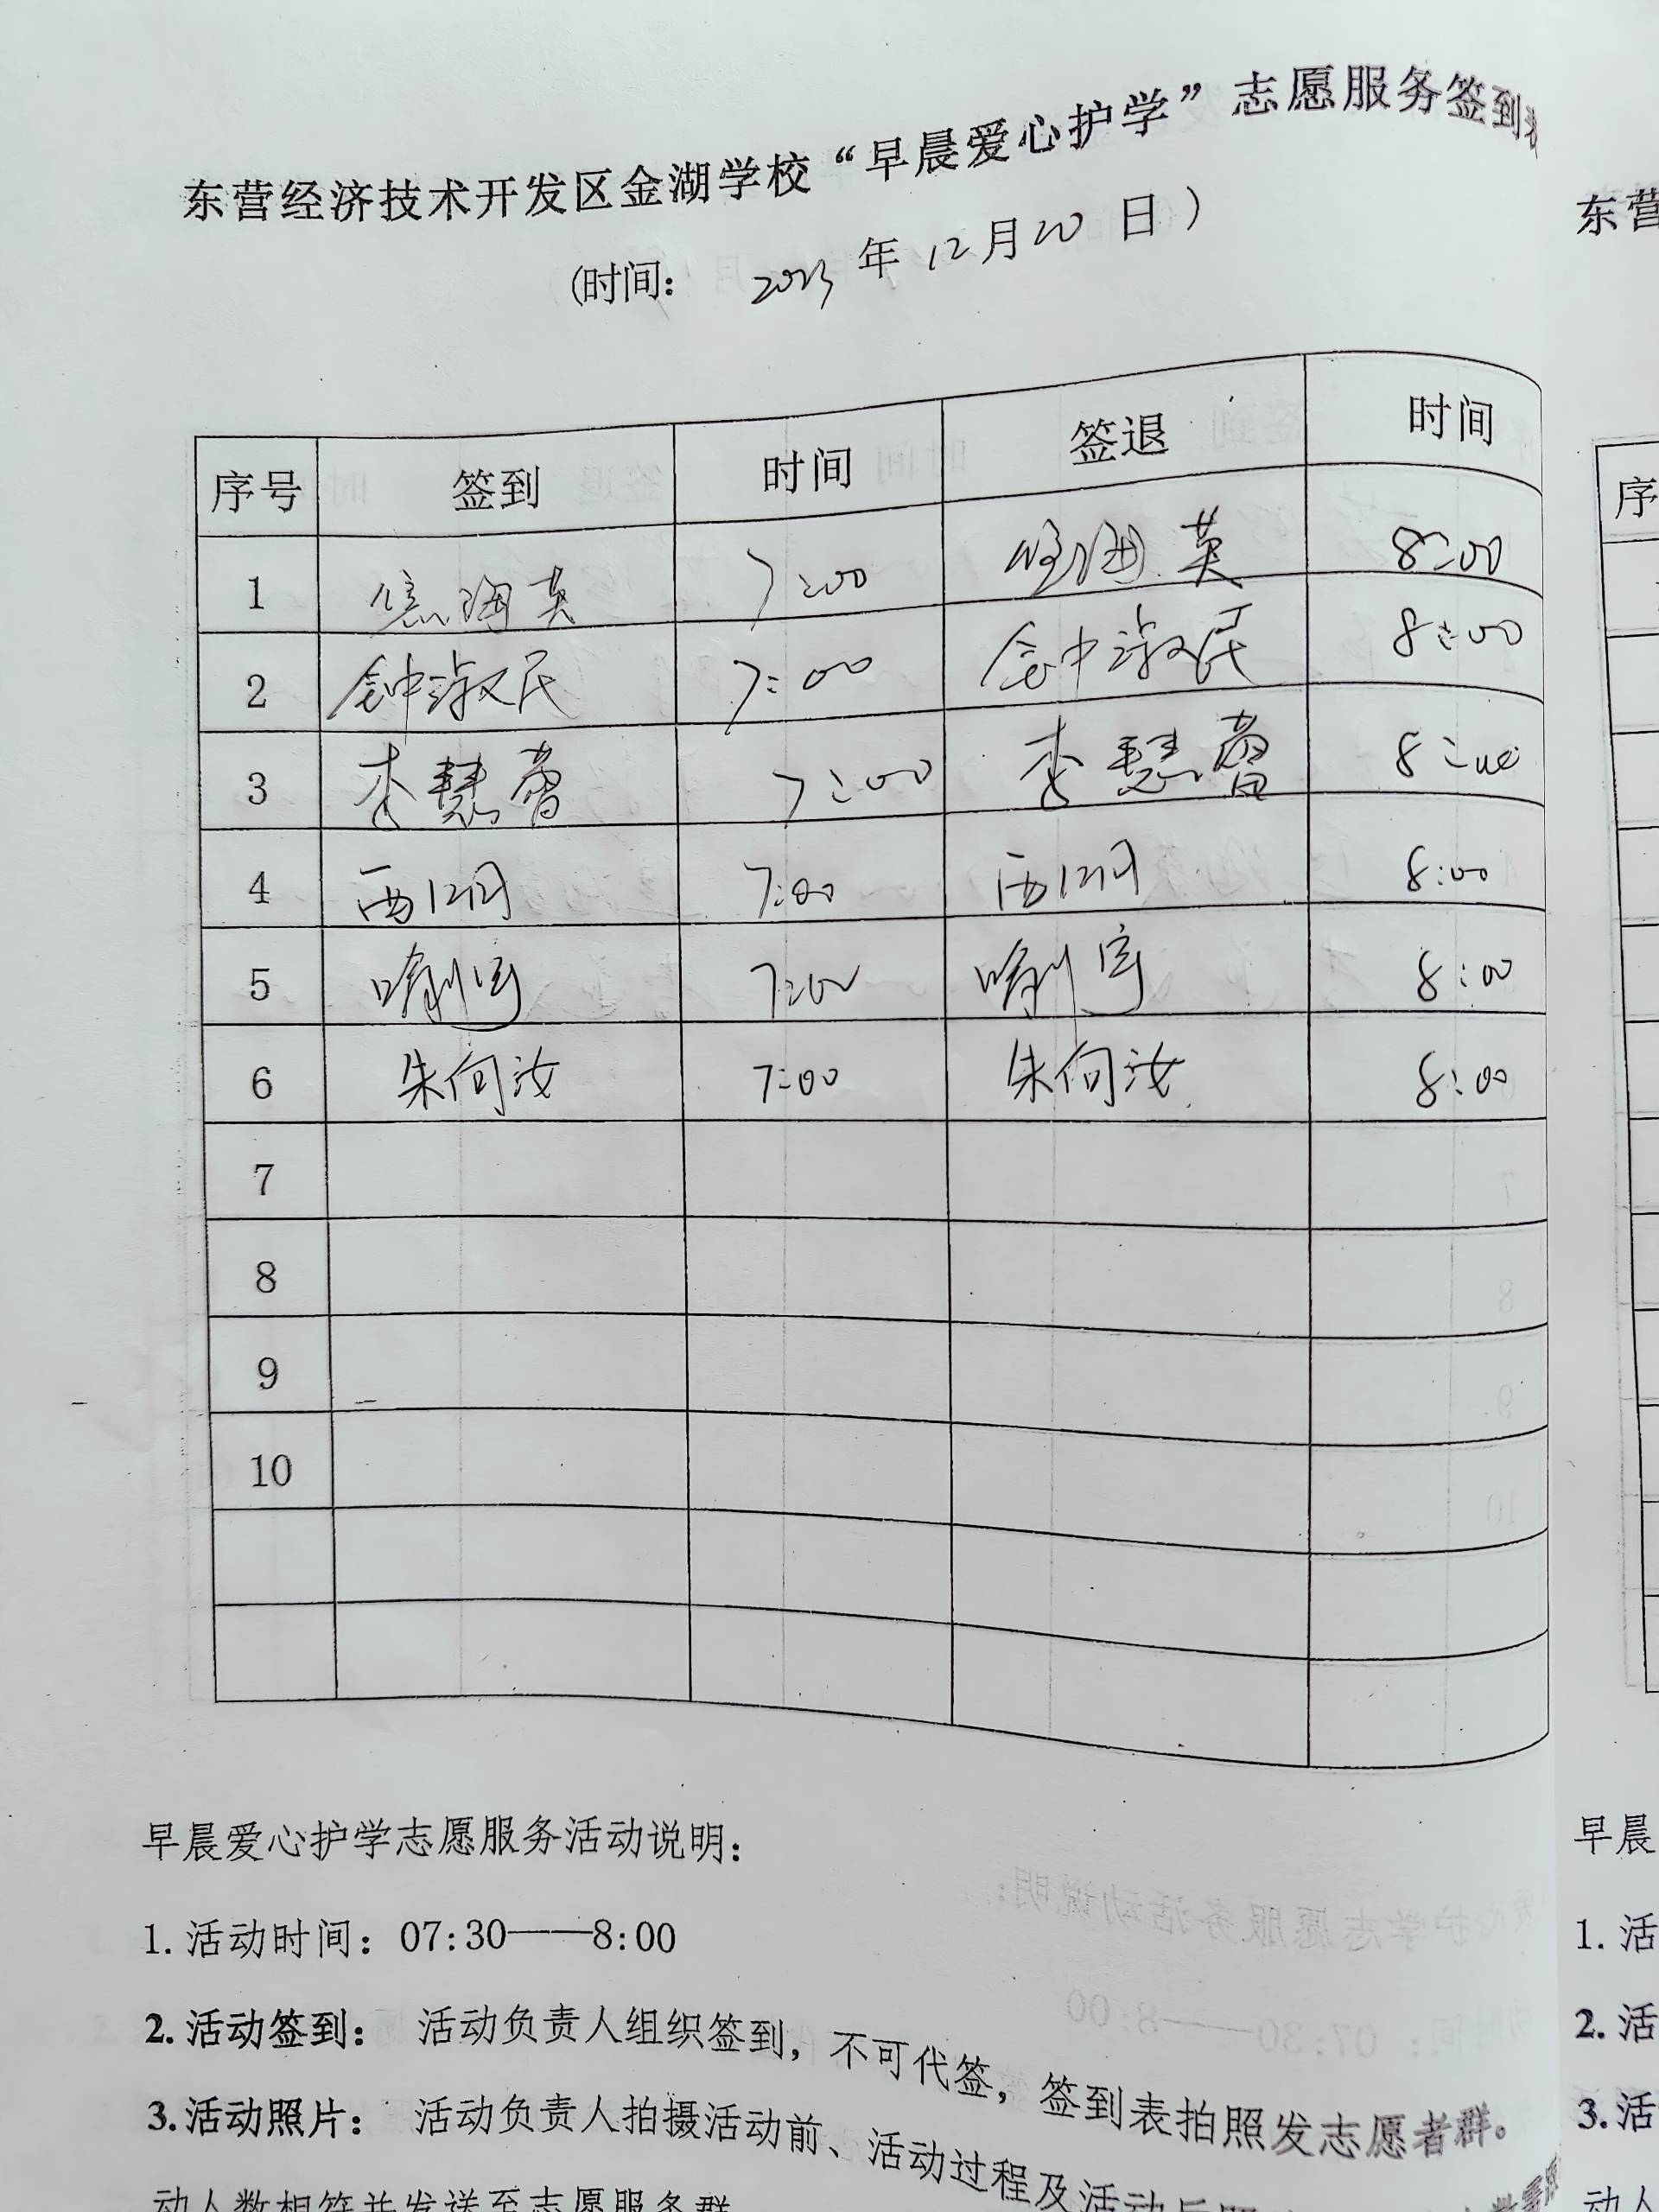 东营经济技术开发区金湖学校“早晨爱心护学”志愿服务签到表
(时间: 2023年12月20日)
序号 签到 时间 签退 时间
1 海英 7:00 海英 8:00
2 钟淑民 7:00 钟淑民 8:00
3 李慧蕾 7:00 李慧蕾 8:00
4 7:00 8:00
5 喻 7:00 喻 8:00
6 朱向汝 7:00 朱向汝 8:00
7
8
9
10
早晨爱心护学志愿服务活动说明:
1.活动时间: 07:30——8:00
2.活动签到: 活动负责人组织签到, 不可代签, 签到表拍照发志愿者群。
3.活动照片: 活动负责人拍摄活动前、活动过程及活动后
动人数相符并发送至志愿服务群
东营
序
早晨
1. 活
2. 活
3. 活
动人